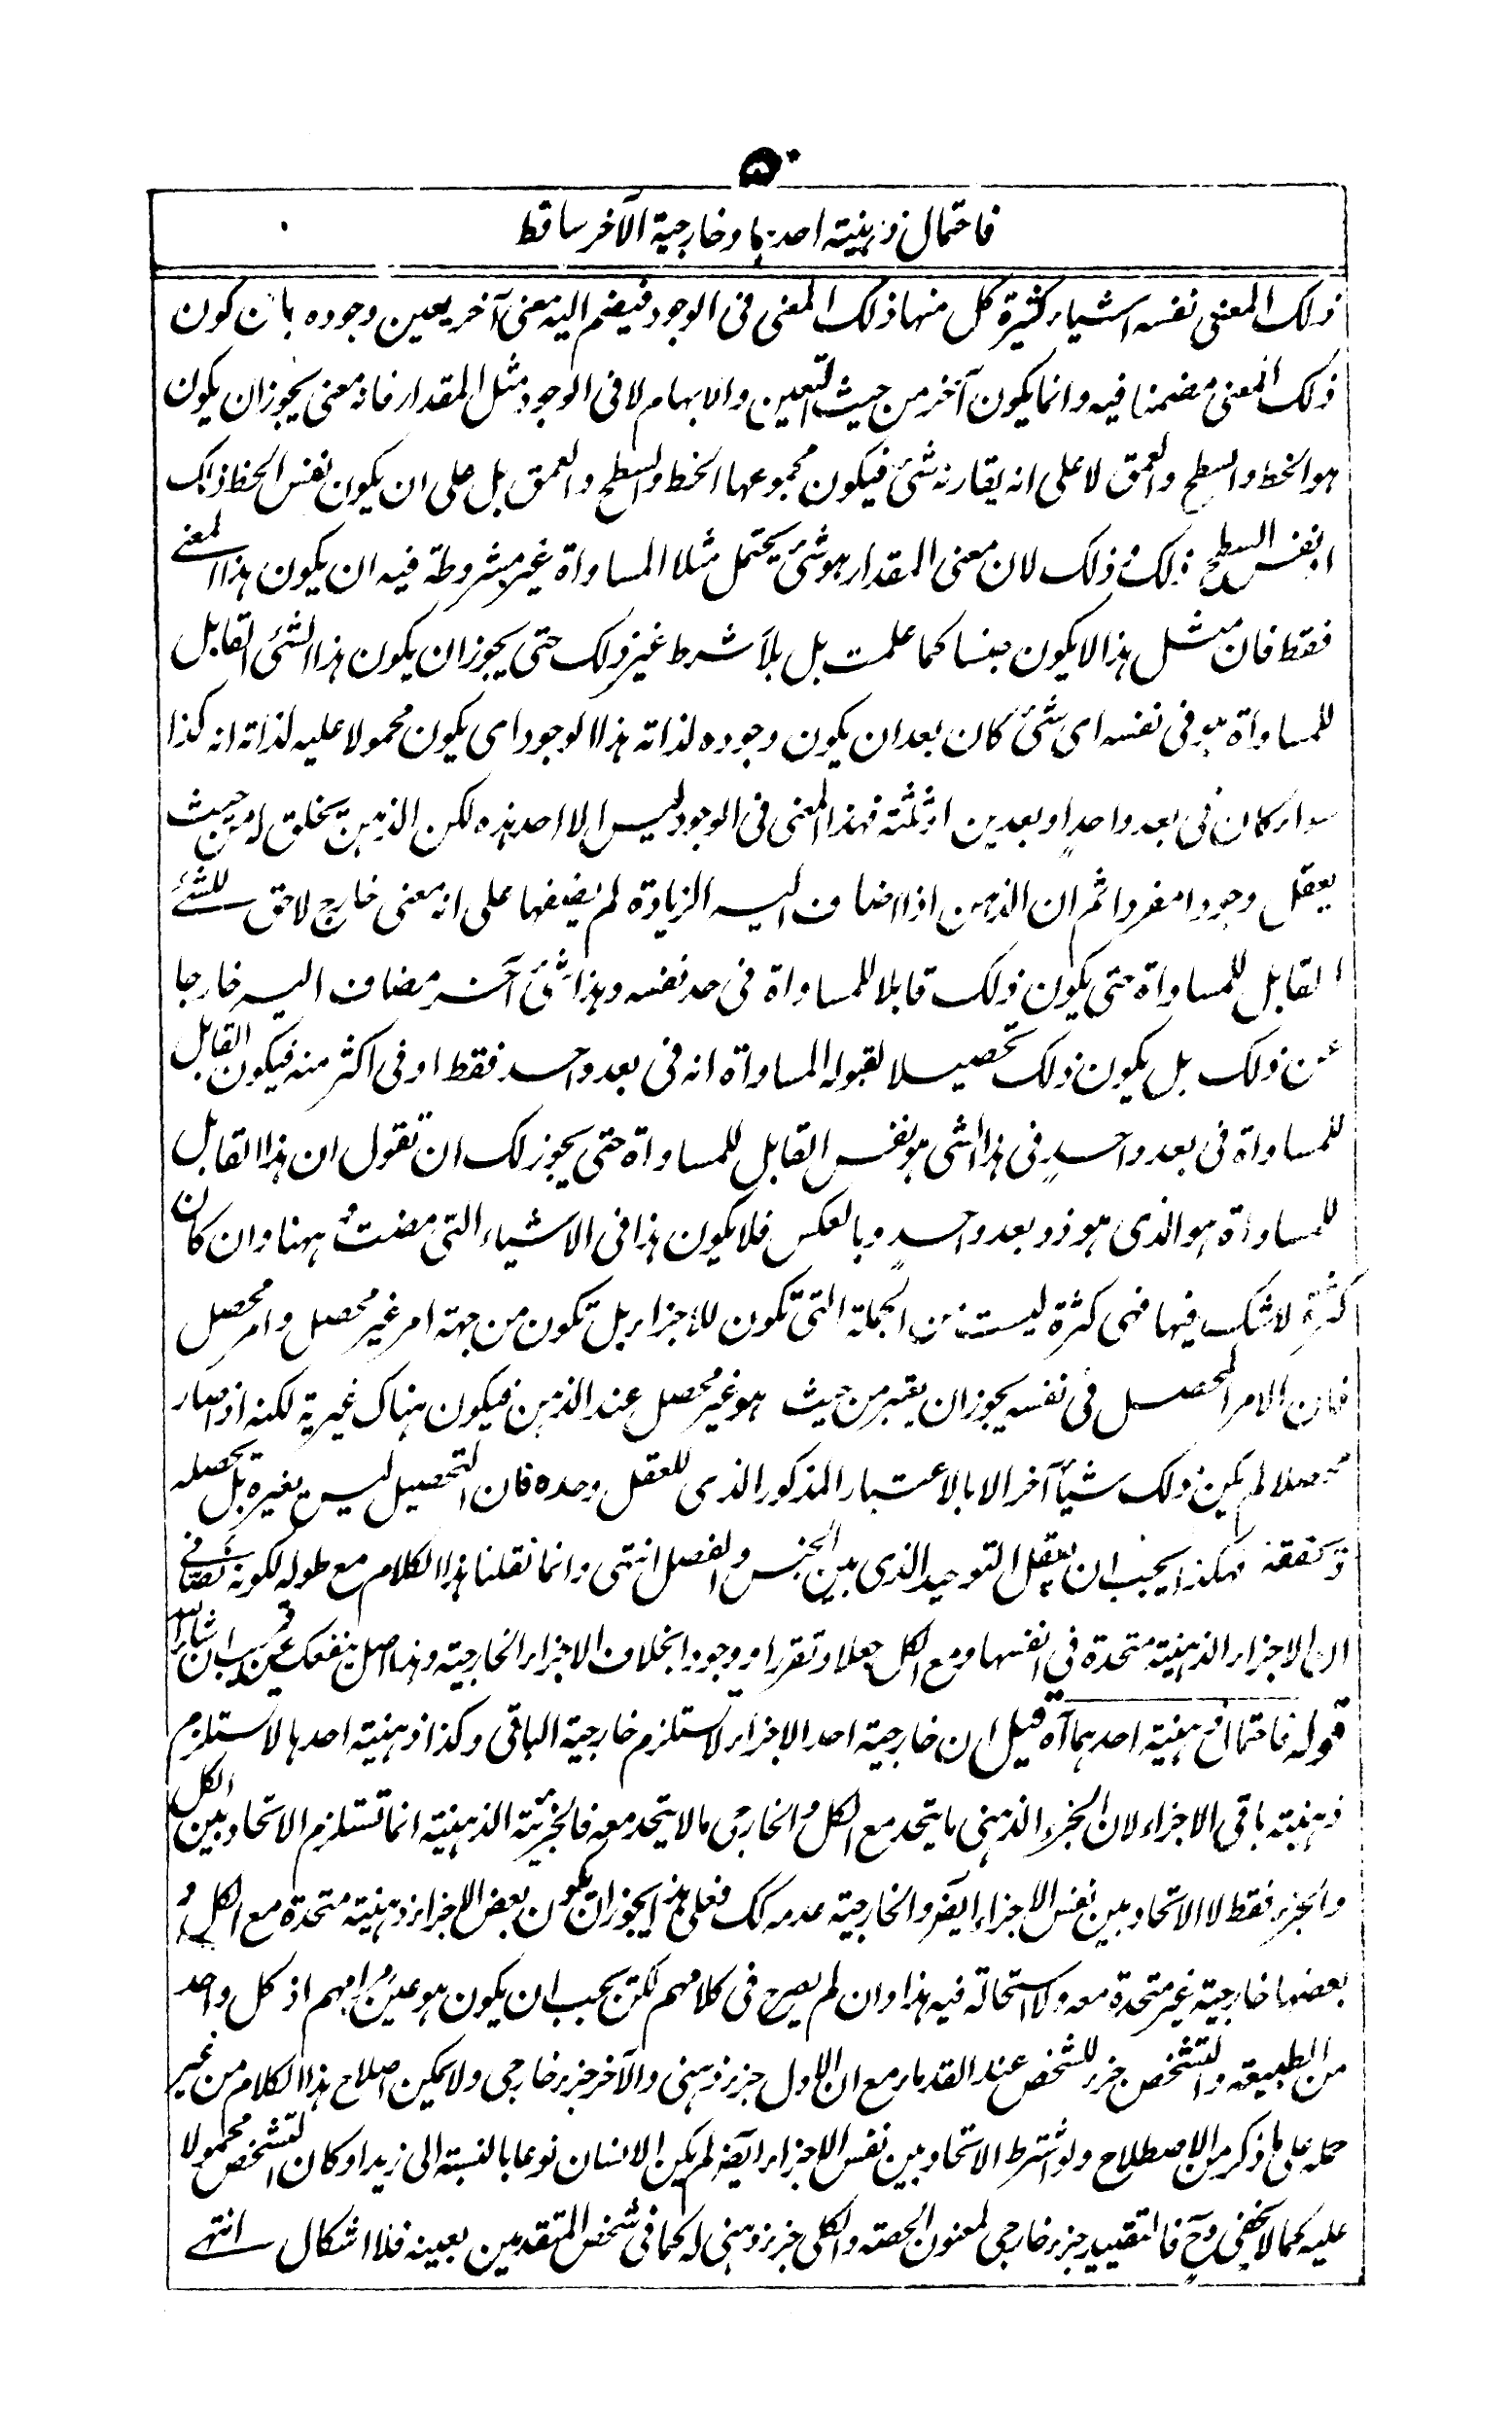 ۵۰
فاحتمال ذهنیته احدهما وخارجية الآخر ساقط
ذلك المعنى نفسه اشياء كثيرة كل منها ذلك المعنى فى الوجود فيضم اليه معنى آخر يعين وجوده بان يكون
ذلك المعنى مضمنا فيه وانما يكون آخر من حيث التعين والابهام لا فى الوجود مثل المقدار فانه معنى يجوز ان يكون
هو الخط والسطح والعمق لا على انه يقارنه شئ فيكون مجموعهما الخط والسطح والعمق بل على ان يكون نفس الخط ذلك
او نفس السطح ذلك وذلك لان معنى المقدار هو شئ يحتمل مثلا المساواة غير مشروطة فيه ان يكون هذا المعنے
فقط فان مثل هذا لا يكون جنسا كما علمت بل بلا شرط غير ذلك حتى يجوز ان يكون هذا الشئ القابل
للمساواة هو فى نفسه اى شئ كان بعد ان يكون وجوده لذاته هذا الوجود اى يكون محمولا عليه لذاته انه كذا
سواء كان فى بعد واحدٍ او بعدين او ثلثة فهذا المعنى فى الوجود ليس الا احد هذه لكن الذهن يخلق له من حيث
يعقل وجودا مفردا ثم ان الذهن اذا اضاف اليه الزيادة لم يضفها على انه معنى خارج لاحق للشئے
القابل للمساواة حتى يكون ذلك قابلا للمساواة فى حد نفسه وهذا شئ آخر مضاف اليه خارجا
عن ذلك بل يكون ذلك تحصيلا لقبوله المساواة انه فى بعد واحد فقط او فى اكثر منه فيكون القابل
للمساواة فى بعد واحدٍ فى هذا الشى هو نفس القابل للمساواة حتى يجوز لك ان تقول ان هذا القابل
للمساواة هو الذى هو ذو بعد واحدٍ وبالعكس فلا يكون هذا فى الاشياء التى مضت و ههنا وان كان
كثرة لا شك فيها فهى كثرة ليست من الجملة التى تكون للاجزاء بل تكون من جهة امر غير محصل وامر محصل
فان الامر المحصل فى نفسه يجوز ان يعتبر من حيث هو غير محصل عند الذهن فيكون هناك غيرية لكنه اذا صار
محصلا لم يكن ذلك شيأ آخر الا بالاعتبار المذكور الذى للعقل وحده فان التحصيل ليس بغيره بل يحصله
ويحققه فهكذا يجب ان يعقل التوحيد الذى بين الجنس والفصل انتهى وانما نقلنا هذا الكلام مع طوله لكونه نصا فے
ان الاجزاء الذهنية متحدة فى انفسها ومع الكل جعلا وتقررا ووجودا بخلاف الاجزاء الخارجية وهذا اصل ينفعك عن قريب ان شاء الله
قوله فاحتمال ذهنية احدهما آه قيل ان خارجية احد الاجزاء لا تستلزم خارجية الباقى وكذا ذهنية احدها لا تستلزم
ذهنية باقى الاجزاء لان الجزء الذهنى ما يتحد مع الكل والخارجى ما لا يتحد معه فالجزئية الذهنية انما تستلزم الاتحاد بين الكل
والجزء فقط لا الاتحاد بين نفس الاجزاء ايضا والخارجية عدمه كك فعلى هذا يجوز ان يكون بعض الاجزاء ذهنية متحدة مع الكل و
بعضها خارجية غير متحدة معه ولا استحالة فيه هذا وان لم يصرح فى كلامهم لكن يجب ان يكون هو عين مرامهم اذ كل واحد
من الطبيعة والتشخص جزء للشخص عند القدماء مع ان الاول جزء ذهنى والآخر جزء خارجى ولا يمكن اصلاح هذا الكلام من غير
حمله على ما ذكر من الاصطلاح ولو اشترط الاتحاد بين نفس الاجزاء ايضا لم يكن الانسان نوعا بالنسبة الى زيد او كان التشخص محمولا
عليه كما لا يخفى وح فالتقييد جزء خارجى لمعنون الحصة والكلى جزء ذهنى له كما فى شخص المتقدمين بعينه فلا اشكال انتهے